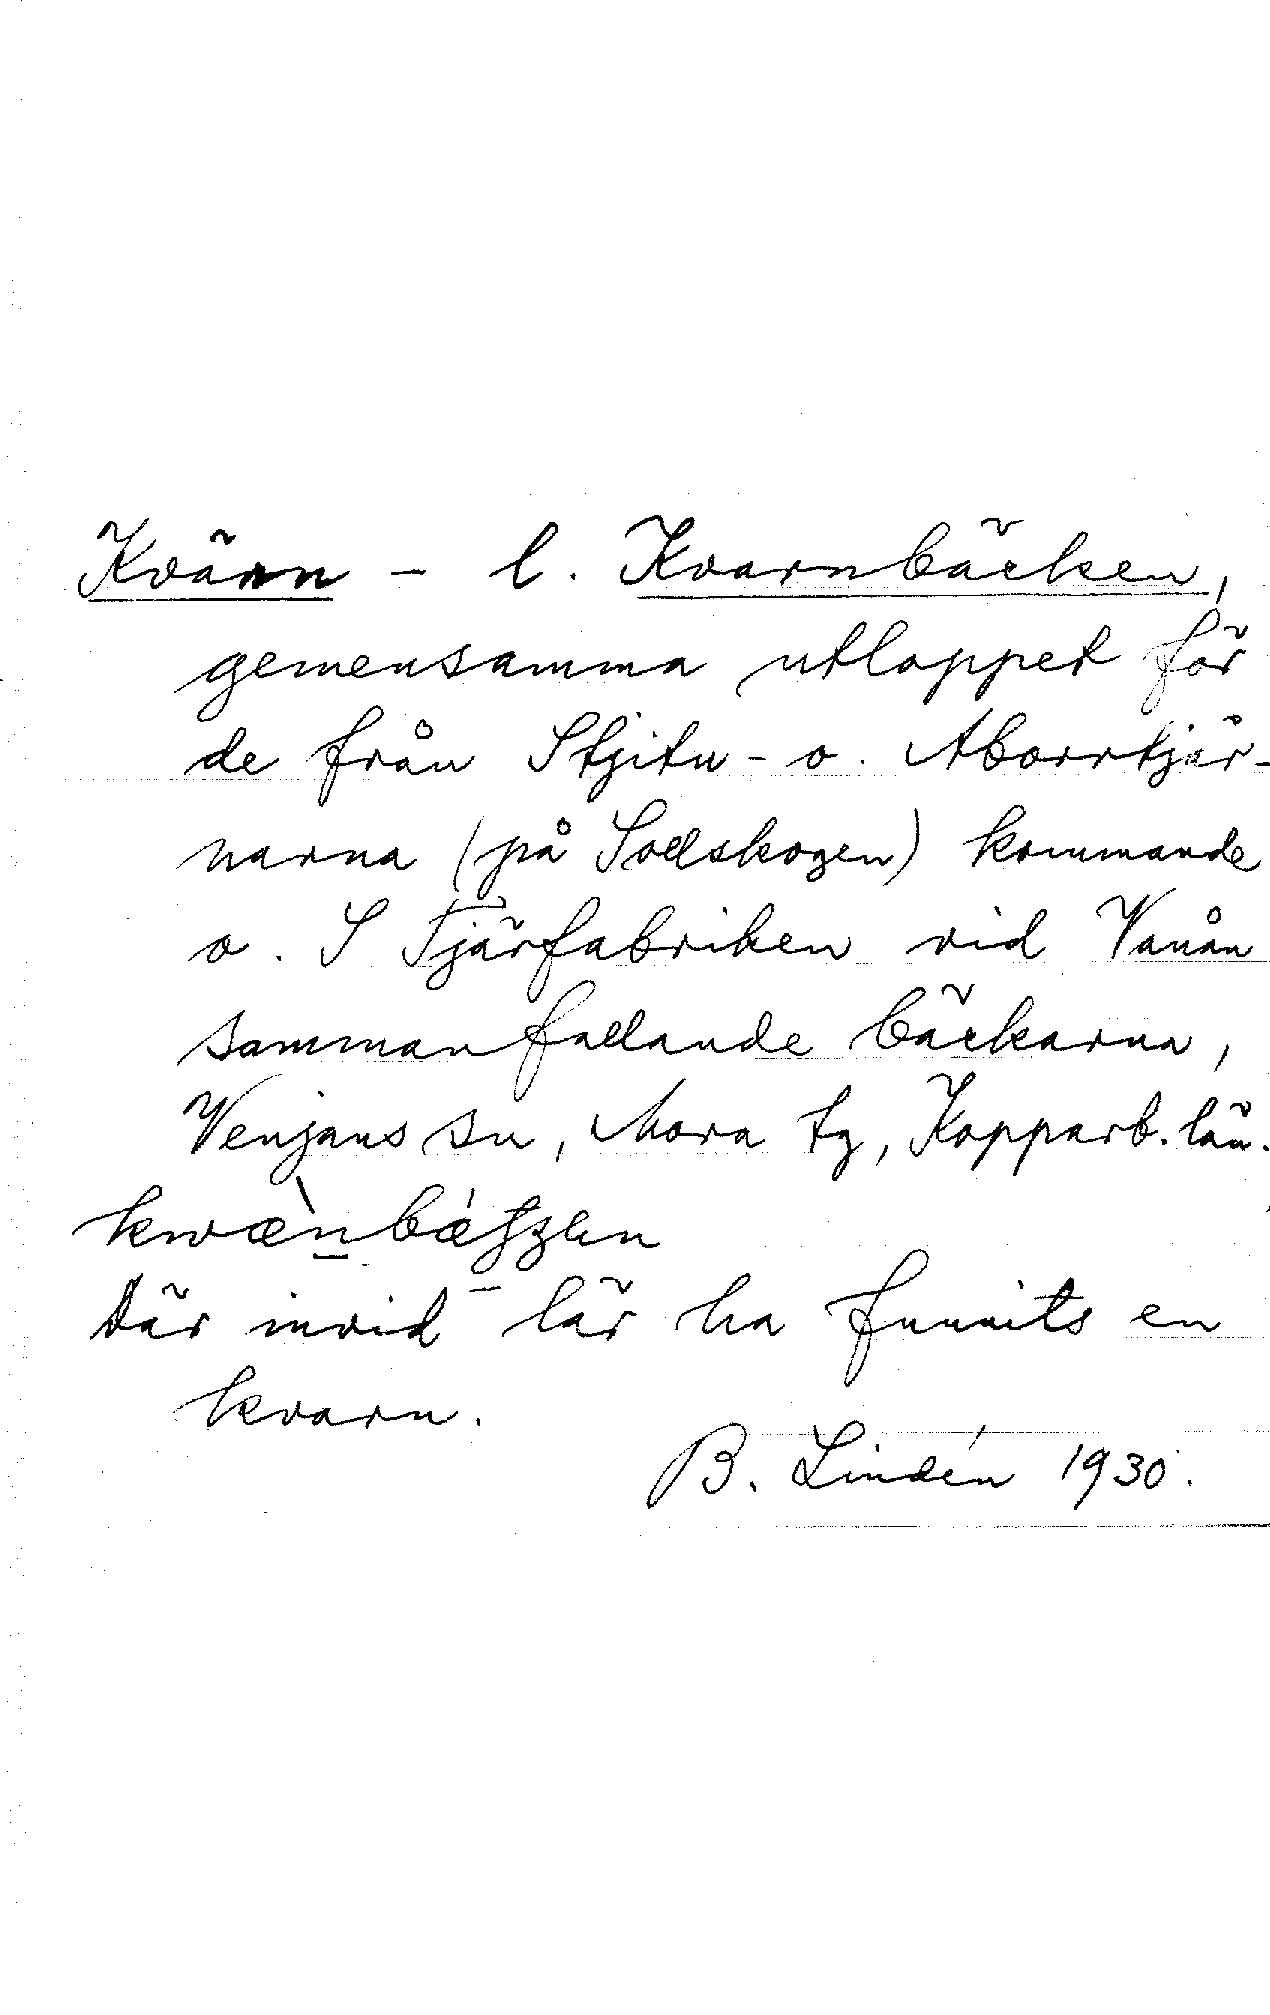 Kvärn - l. Kvarnbäcken,
gemensamma utloppet för
de från Stjitu- o. Aborrtjär-
narna (på Sollskogen) kommande
o. S Tjärfabriken vid Vanån
sammanfallande bäckarna,
Venjans sn, Mora tg, Kopparb. län.
Där invid lär ha funnits en
kvarn.
B. Lindén 1930.